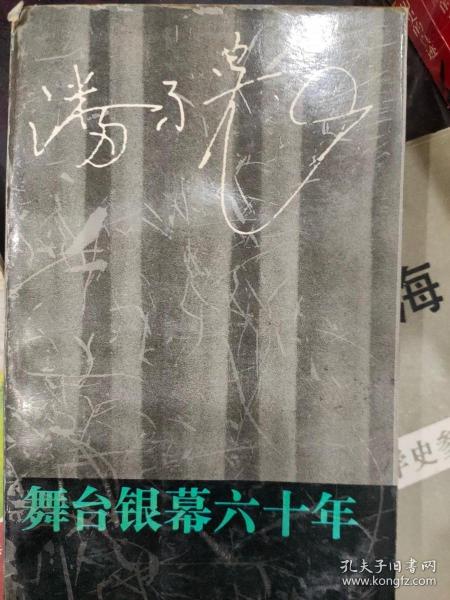 潘子农
舞台银幕六十年
海
学史参
孔夫子旧书网
www.kongfz.com